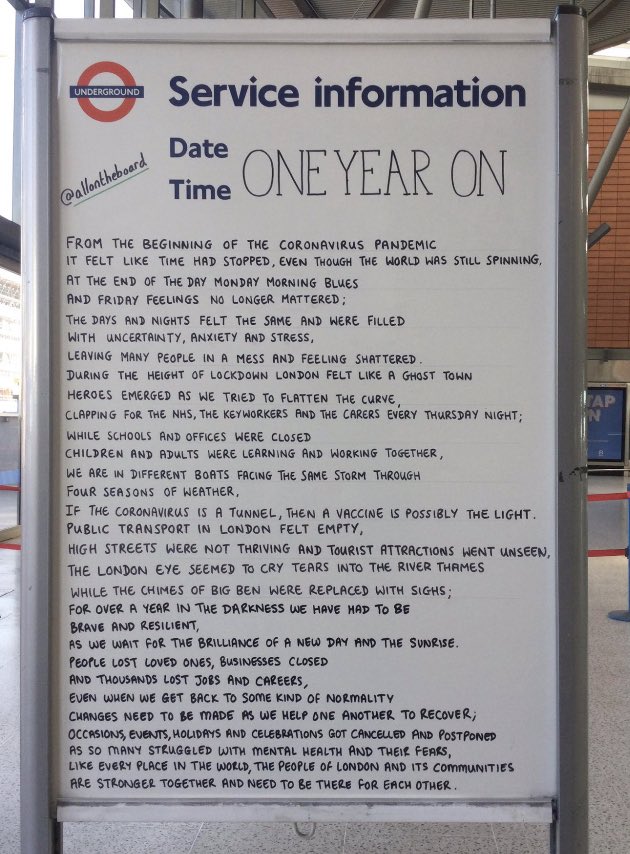 UNDERGROUND
Service information
Date
Time
ONE YEAR ON
@allontheboard
FROM THE BEGINNING OF THE CORONAVIRUS PANDEMIC
IT FELT LIKE TIME HAD STOPPED, EVEN THOUGH THE WORLD WAS STILL SPINNING.
AT THE END OF THE DAY MONDAY MORNING BLUES
AND FRIDAY FEELINGS NO LONGER MATTERED;
THE DAYS AND NIGHTS FELT THE SAME AND WERE FILLED
WITH UNCERTAINTY, ANXIETY AND STRESS,
LEAVING MANY PEOPLE IN A MESS AND FEELING SHATTERED.
DURING THE HEIGHT OF LOCKDOWN LONDON FELT LIKE A GHOST TOWN
HEROES EMERGED AS WE TRIED TO FLATTEN THE CURVE,
CLAPPING FOR THE NHS, THE KEYWORKERS AND THE CARERS EVERY THURSDAY NIGHT;
WHILE SCHOOLS AND OFFICES WERE CLOSED
CHILDREN AND ADULTS WERE LEARNING AND WORKING TOGETHER,
WE ARE IN DIFFERENT BOATS FACING THE SAME STORM THROUGH
FOUR SEASONS OF WEATHER,
IF THE CORONAVIRUS IS A TUNNEL, THEN A VACCINE IS POSSIBLY THE LIGHT.
PUBLIC TRANSPORT IN LONDON FELT EMPTY,
HIGH STREETS WERE NOT THRIVING AND TOURIST ATTRACTIONS WENT UNSEEN,
THE LONDON EYE SEEMED TO CRY TEARS INTO THE RIVER THAMES
WHILE THE CHIMES OF BIG BEN WERE REPLACED WITH SIGHS;
FOR OVER A YEAR IN THE DARKNESS WE HAVE HAD TO BE
BRAVE AND RESILIENT,
AS WE WAIT FOR THE BRILLIANCE OF A NEW DAY AND THE SUNRISE.
PEOPLE LOST LOVED ONES, BUSINESSES CLOSED
AND THOUSANDS LOST JOBS AND CAREERS,
EVEN WHEN WE GET BACK TO SOME KIND OF NORMALITY
CHANGES NEED TO BE MADE AS WE HELP ONE ANOTHER TO RECOVER;
OCCASIONS, EVENTS, HOLIDAYS AND CELEBRATIONS GOT CANCELLED AND POSTPONED
AS SO MANY STRUGGLED WITH MENTAL HEALTH AND THEIR FEARS,
LIKE EVERY PLACE IN THE WORLD, THE PEOPLE OF LONDON AND ITS COMMUNITIES
ARE STRONGER TOGETHER AND NEED TO BE THERE FOR EACH OTHER.